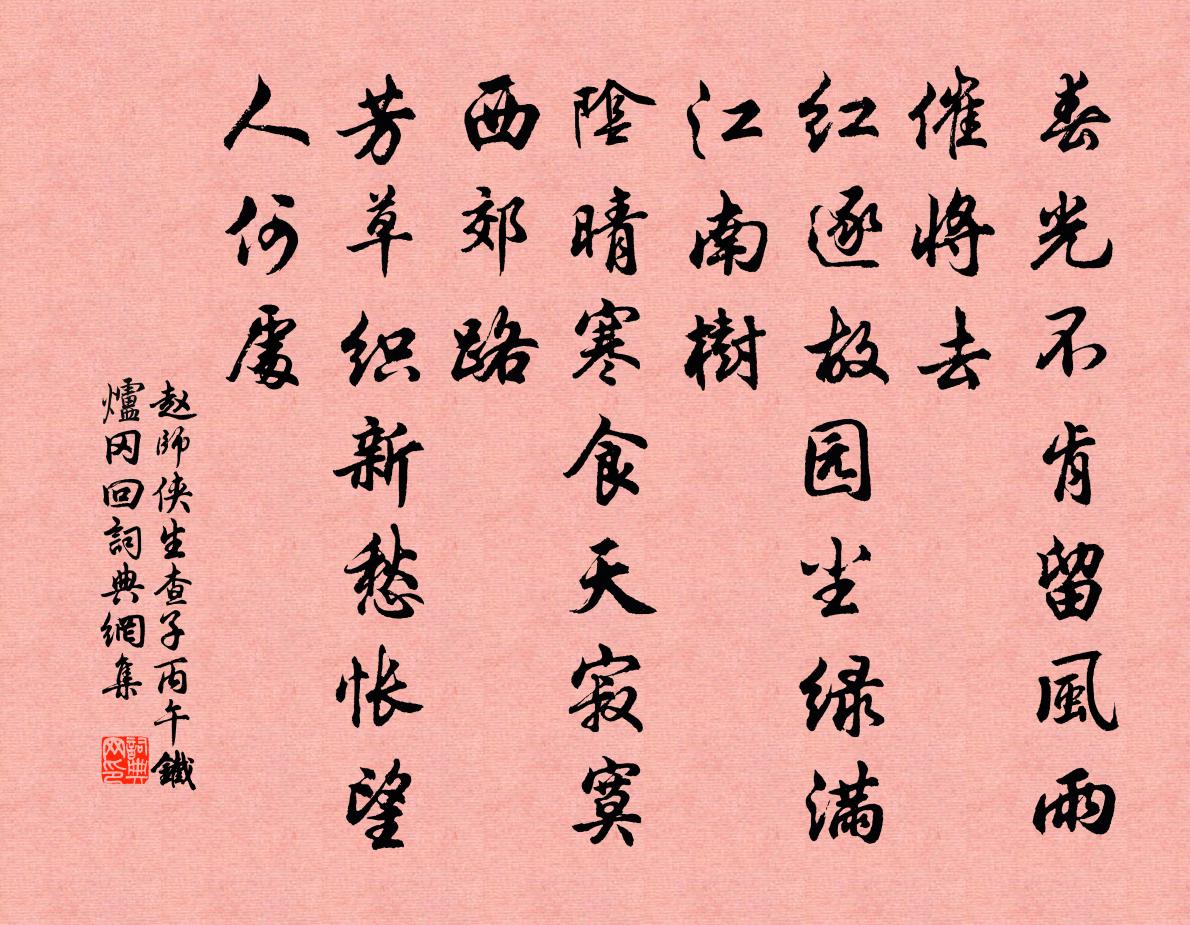 春光不肯留風雨
催將去
红逐故园尘绿滿
江南樹
陰晴寒食天寂寞
西郊路
芳草织新愁怅望
人何處
赵師侠生查子丙午鐵
爐冈回詞典網集
詞典
网印